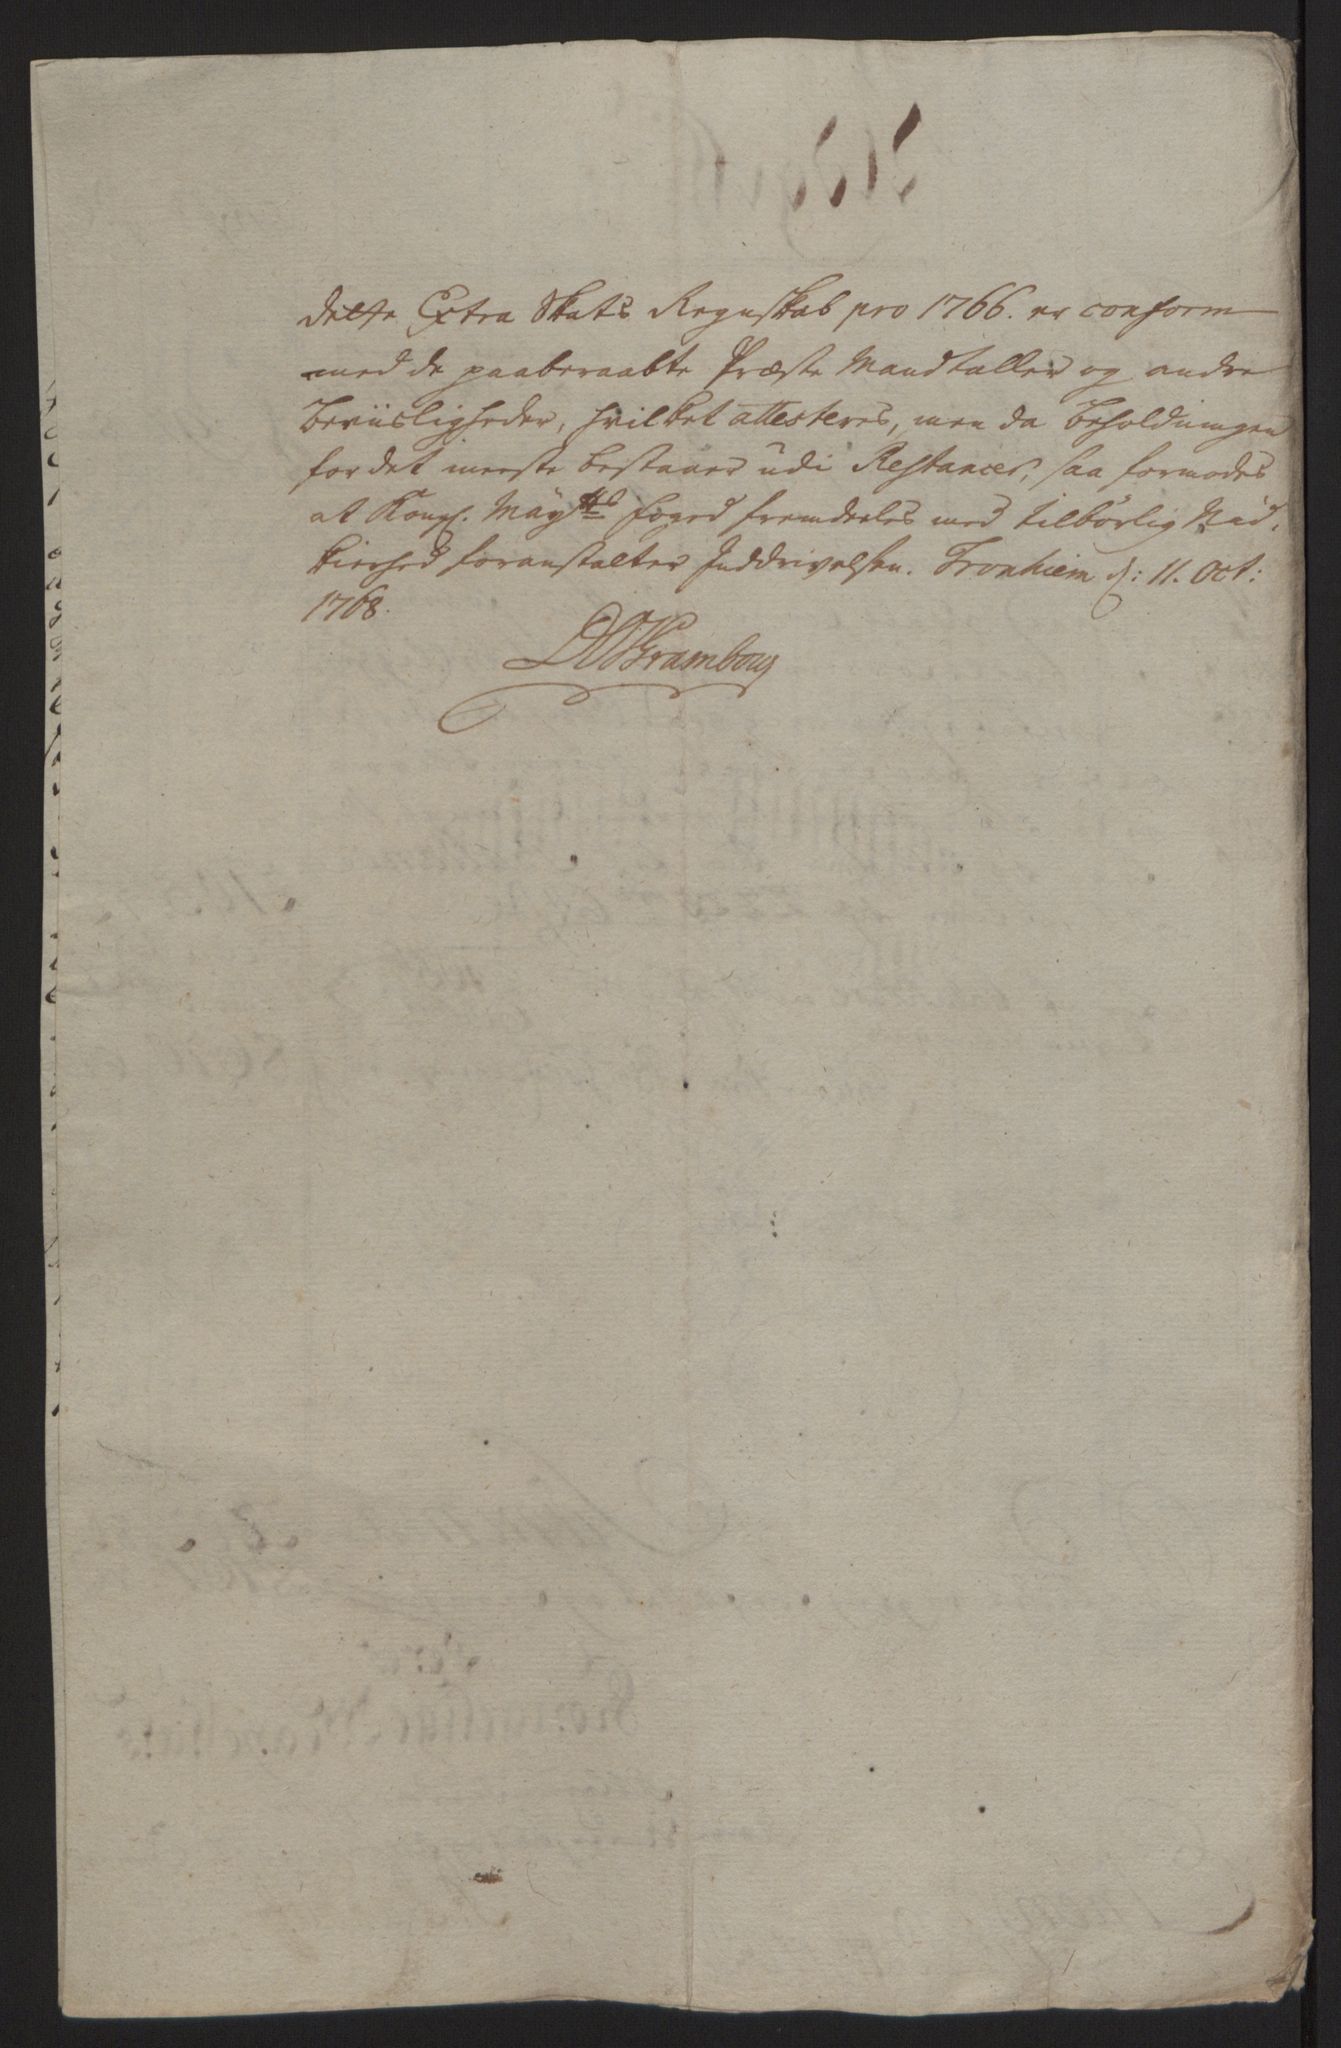 dette Extra Skats Regnskab pro 1766. er conform
med de paaberaabte Præste Mandtaller og andre
Beviisligheder, hvilket attesteres, men da Beholdningen
for det meeste bestaaer udi Restancer, saa formodes
at Kongl. May<sup>tts</sup> foged fremdeeles med tilbörlig Nid-
kierhed foranstalter Inddrivelsen. Tronhiem d: 11. Oct:
1768.